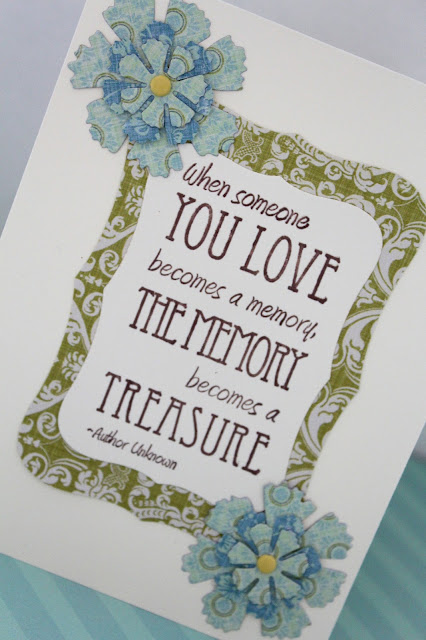 When someone
YOU LOVE
becomes a memory,
THE MEMORY
becomes a
TREASURE
~Author Unknown